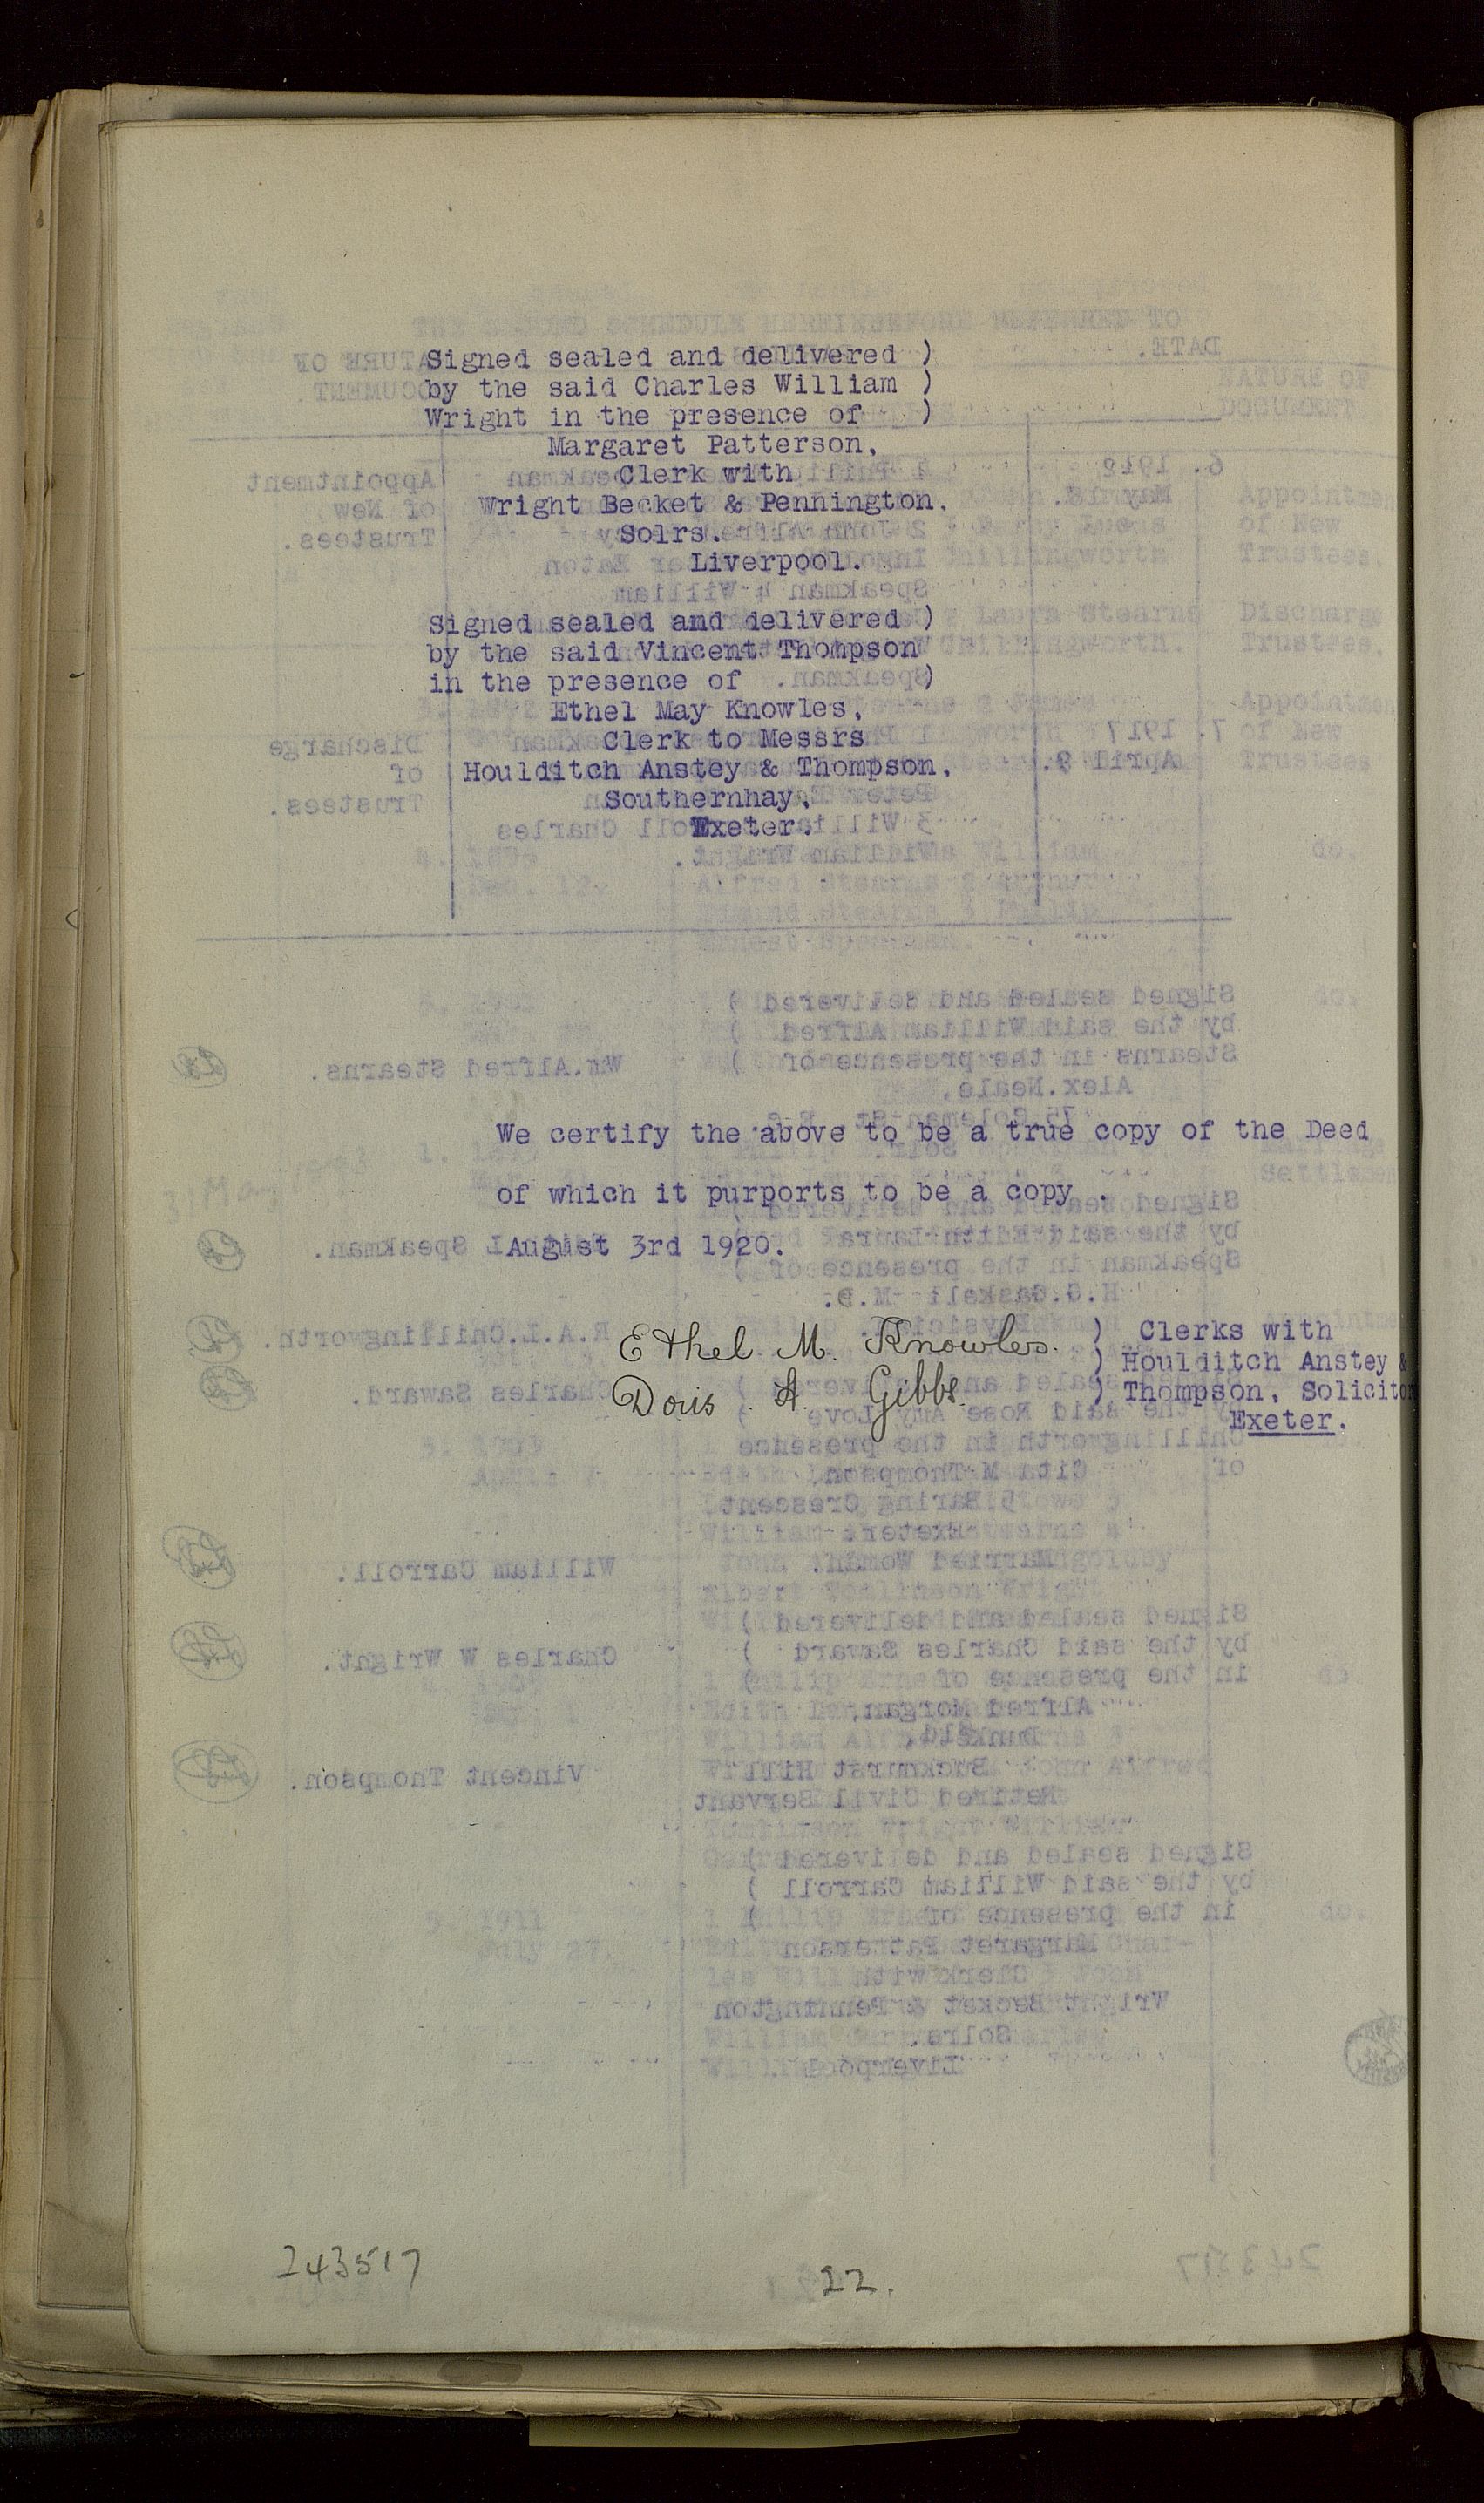 Signed sealed and delivered )
by the said Charles William )
Wright in the presence of )
Margaret Patterson,
Clerk with
Wright Becket & Pennington,
Solrs.
Liverpool.
Signed sealed and delivered )
by the said Vincent Thompson
in the presence of )
Ethel May Knowles,
Clerk to Messrs
Houlditch Anstey & Thompson,
Southernhay,
Exeter.
We certify the above to be a true copy of the Deed
of which it purports to be a copy .
August 3rd 1920.
Ethel M. Knowles. ) Clerks with
) Houlditch Anstey &
Doris A. Gibbs. ) Thompson, Solicitor
Exeter.
243517
22.